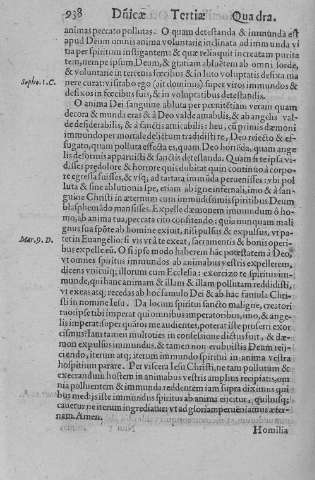 938 Dñicæ Tertiæ Quadra.
animas peccato pollutas. O quam detestanda & immunda est
apud Deum omnis anima voluntarie inclinata ad immunda vi
tia per spiritum instigantem: & quæ relinquit increatam purita
tem, nempe ipsum Deum, & gratiam abluentem ab omni sorde,
& voluntarie in terrenis fœcibus & in luto voluptatis defixa ma
nere curat: visitabo ego (ait dominus) super viros immundos &
Sopho. 1. C.
defixos in fœcibus suis, & in voluptatibus detestandis.
O anima Dei sanguine abluta per pœnitētiam veram quam
decora & munda eras & à Deo valde amabilis, & ab angelis val
de desiderabilis, & à sanctis amicabilis: heu, cũ primũ dæmoni
immundo per mortale delictum te addidisti, Deo reiecto & ef-
fugato, quam polluta effecta es, quam Deo horrida, quam ange
lis deformis apparuisti & sanctis detestanda. Quam si te ipsa vi-
disses præ dolore & horrore quis dubitat quin continuò à corpo-
re egressa fuisses, & vsq; ad tartara immunda peruenisses, vbi pol
luta & sine ablutionis spe, etiam ab igne infernali, imo & à san-
guine Christi in æternum cum immũdissimis spiritibus Deum
blasphemãdo mansisses. Expelle dæmonem immundum ô ho-
mo, ab anima tua, peccata cito confitendo: quia nunquam mali
gnus sua spõte ab homine exiuit, nisi pulsus & expulsus, vt pa-
tet in Euangelio: si vis vt à te exeat, sacramentis & bonis operi-
Mar. 9. D.
bus expelle eũ. O si ipse modo haberem hãc potestatem à Deo,
vt omnes spiritus immundos ab animabus vestris expellerem,
dicens vnicuiq; illorum cum Ecclesia: exorcizo te spiritus im-
munde, quibanc animam & illam & illam pollutam reddidisti,
vt exeas atq; recedas ab hoc famulo Dei & ab hac famula Chri-
sti in nomine Iesu. Da locum spiritui sancto maligne, creatori
tuo: ipse tibi imperat qui omnibus imperatoribus, imo, & ange-
lis imperat: sper quãtos me audientes, poterat iste proferri exor-
cismus: nam expulsus multoties in confessione dictus fuit, & dæ-
mon expulsus immundus, & tamen non erubuistis Deum reij-
ciendo, iterum atq; iterum immundo spiritui in anima vestra
hospitium parare. Per viscera Iesu Christi, ne tam pollutum &
execrandum hostem in animabus vestris amplius recipiatis, om
nia polluentem & immunda reddentem iam supra dixistis qui
bus medijs iste immundus spiritus ab anima eiicitur, quibusq;
cauetur ne iterum ingrediatur: vt ad gloriam perueniamus æter-
nam. Amen.
Homilia